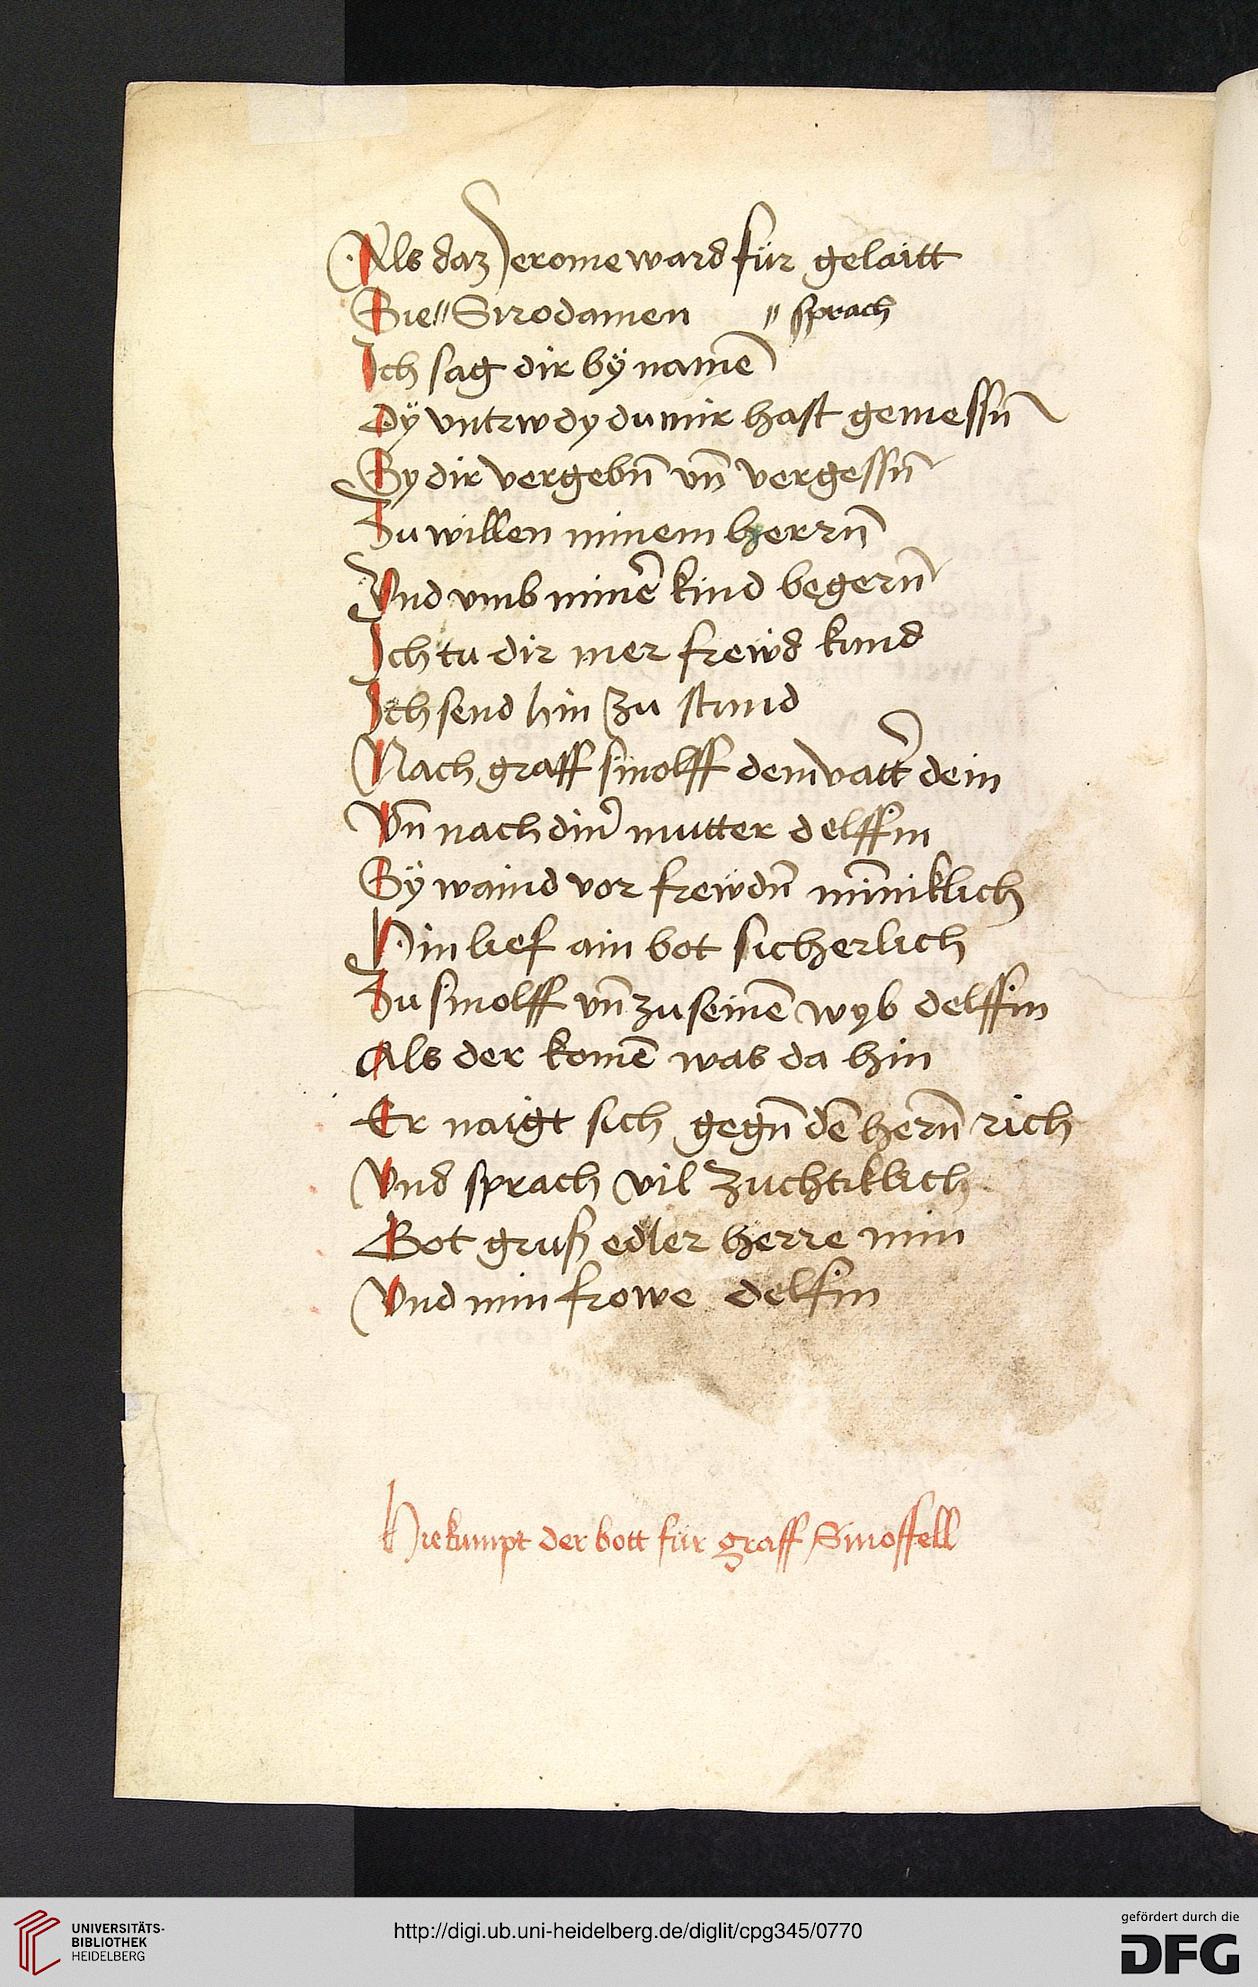 Als daz Jerome ward für gelaitt
Sie〃 Sirodamen 〃 sprach
Ich sag dir bÿ namē
Dÿ vntrw dy du mir hast gemessn̄
Sy dir vergebn̄ vn̄ vergessn̄
Zu willen minem herrn̄
Vnd vmb minē kind begern̄
Ich tu dir mer frewd kund
Ich send hin zu stund
Nach graff sinolff dem vatt̄ dein
Vn̄ nach din̄ mutter delffin
Sÿ waind vor frewdn̄ min̄iklich
Hin lief ain bot sicherlich
Zu sinolff vn̄ zu seinē wyb delffin
Als der komē was da hin
Er naigt sich gegn̄ dē hern̄ rich
Vnd sprach vil zuchtiklich
Got gruß edler herre min
Vnd min frowe delfin
Hie kumpt der bott für graff Sinoffell
UNIVERSITÄTS-
BIBLIOTHEK
HEIDELBERG
http://digi.ub.uni-heidelberg.de/diglit/cpg345/0770
gefördert durch die
DFG